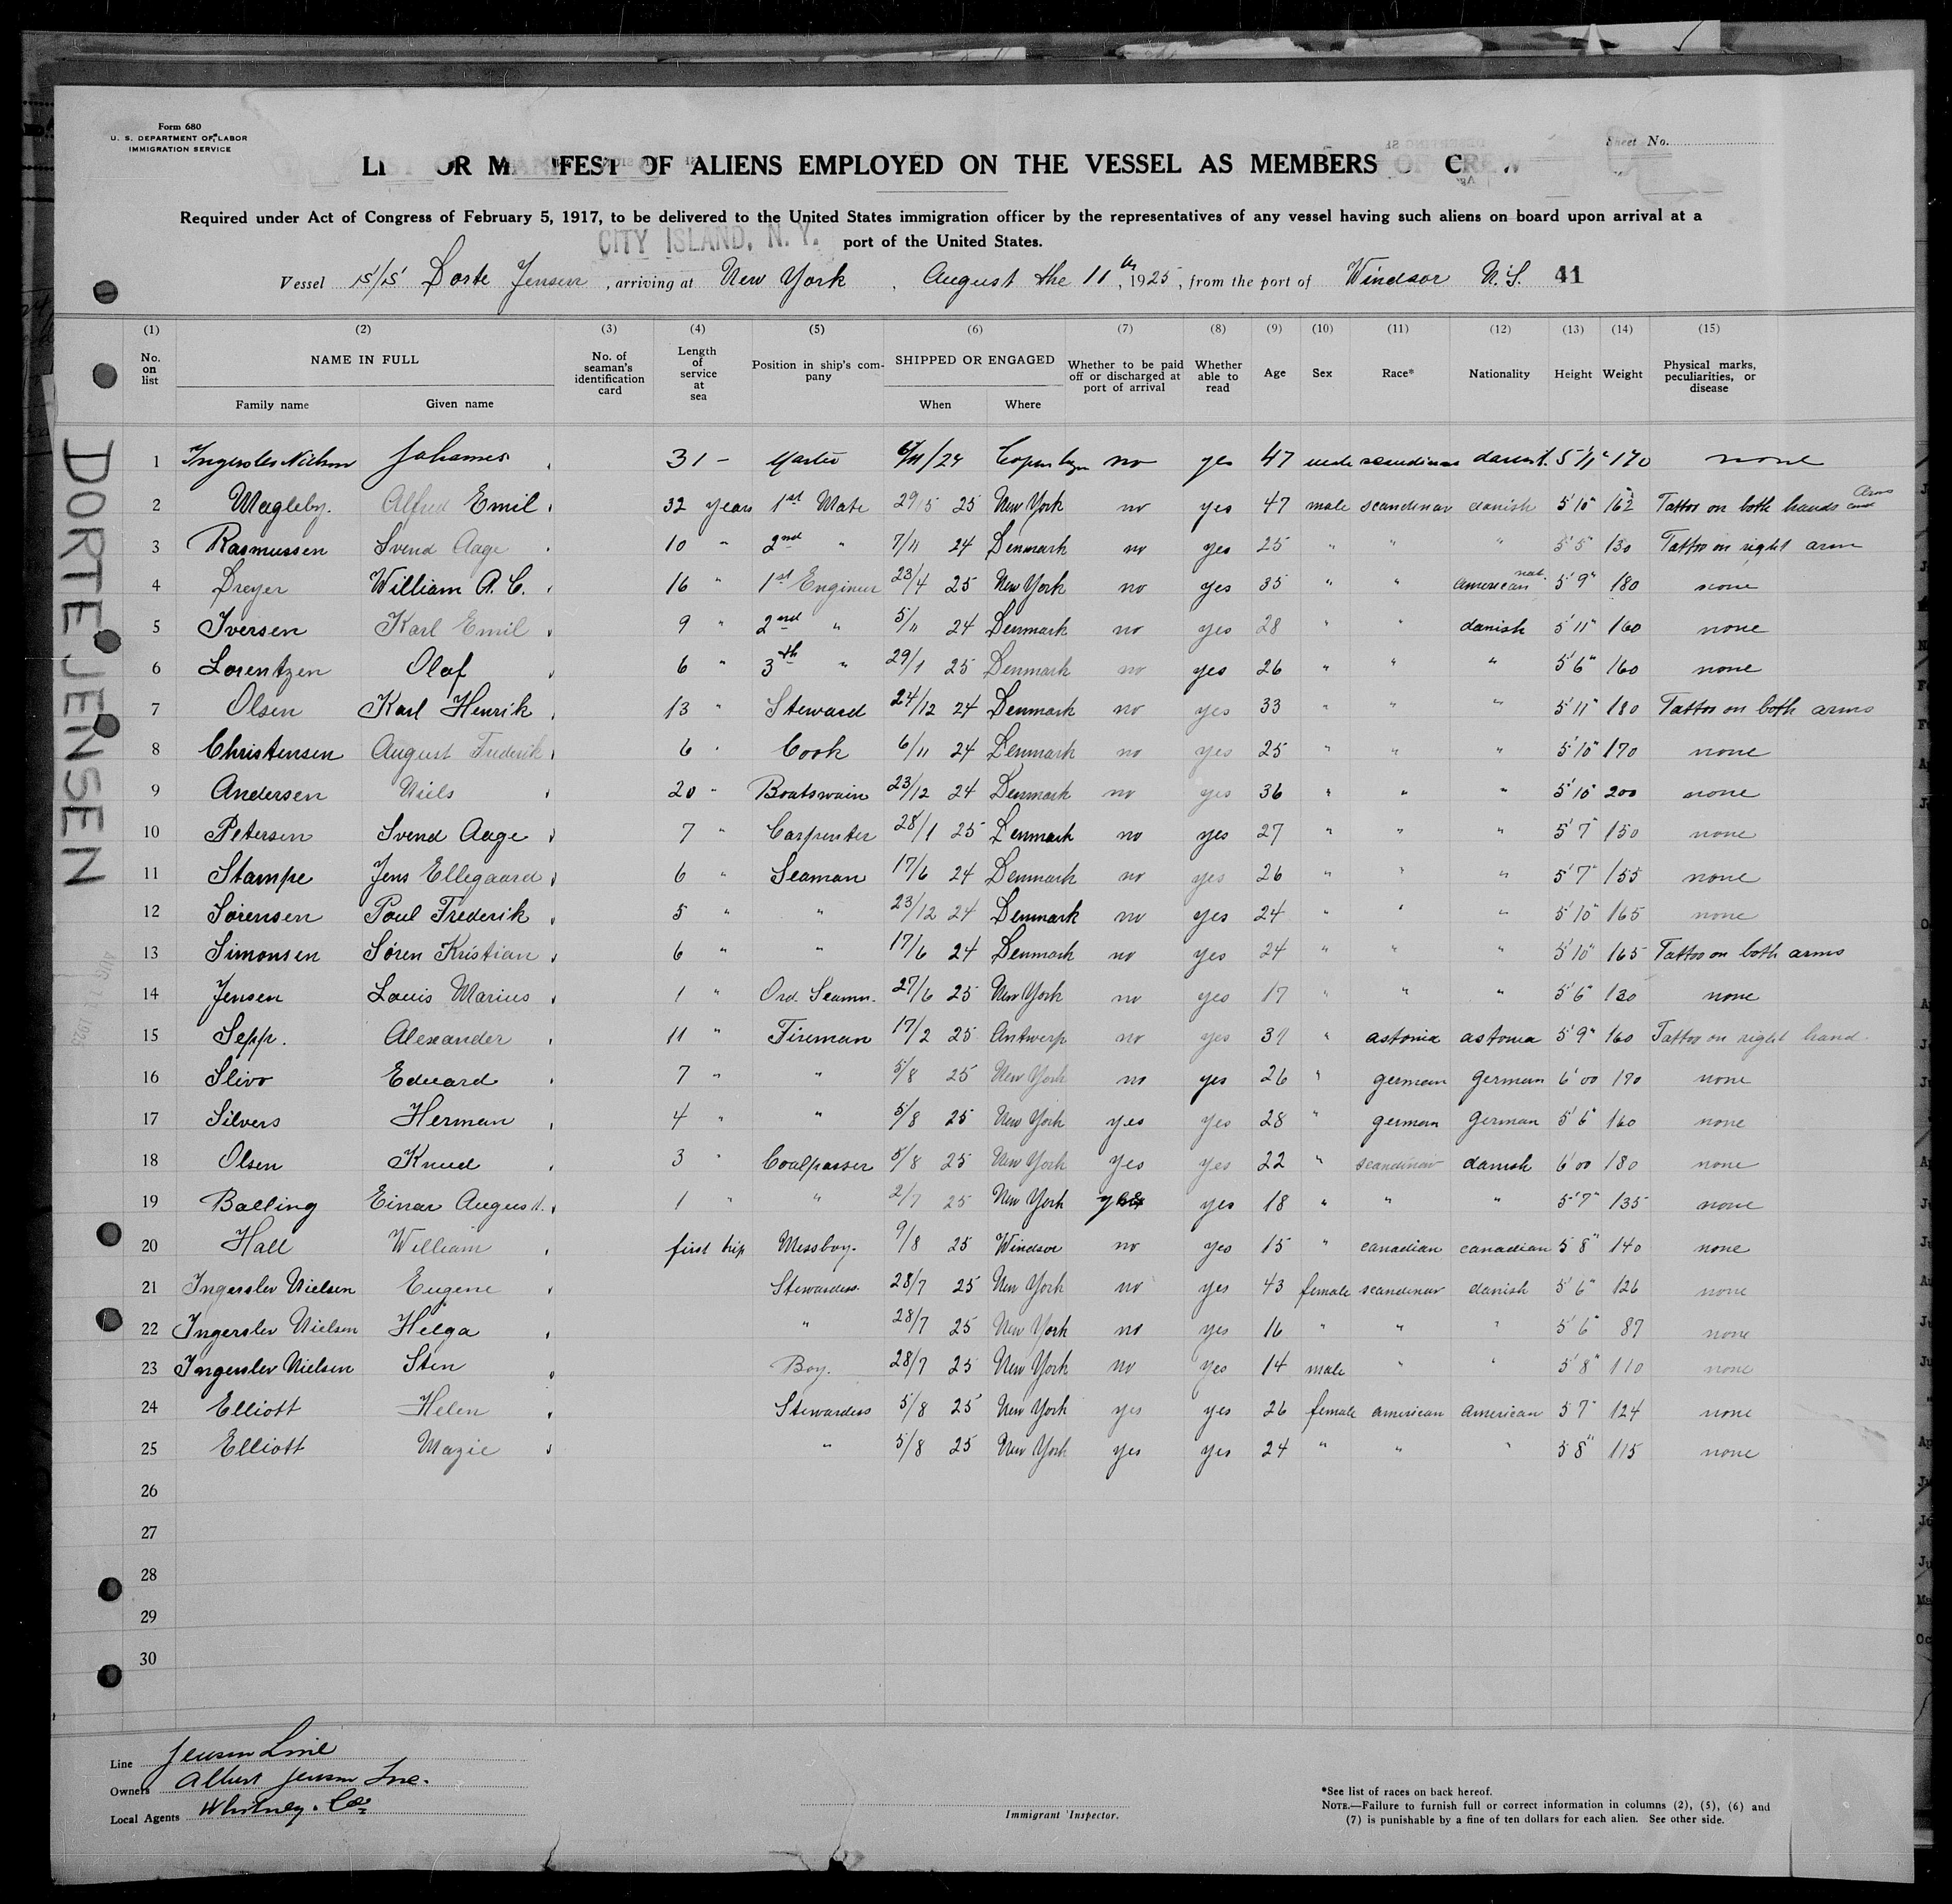 Form 680
U. S. DEPARTMENT OF LABOR
IMMIGRATION SERVICE
Sheet No.
LIST OR MANIFEST OF ALIENS EMPLOYED ON THE VESSEL AS MEMBERS OF CREW
Required under Act of Congress of February 5, 1917, to be delivered to the United States immigration officer by the representatives of any vessel having such aliens on board upon arrival at a
port of the United States.
CITY ISLAND, N. Y.
Vessel S/S Dorte Jensen, arriving at New York, August the 11th, 1925, from the port of Windsor N.S. 41
(1) (2) (3) (4) (5) (6) (7) (8) (9) (10) (11) (12) (13) (14) (15)
No. on list NAME IN FULL Family name Given name No. of seaman's identification card Length of service at sea Position in ship's company SHIPPED OR ENGAGED When Where Whether to be paid off or discharged at port of arrival Whether able to read Age Sex Race* Nationality Height Weight Physical marks, peculiarities, or disease
1 Ingerslev Nielsen Johannes 31 - Master 6/11/24 Copenhagen no yes 47 male scandinav danish 5'11" 170 none
2 Magleby. Alfred Emil 32 years 1st Mate 29/5 25 New York no yes 47 male scandinav danish 5'10" 162 Tattoo on both hands and Arms
3 Rasmussen Svend Aage 10 " 2nd " 7/11 24 Denmark no yes 25 " " " 5'5" 130 Tattoo on right arm
4 Dreyer William A. C. 16 " 1st Engineer 23/4 25 New York no yes 35 " " american nat. 5'9" 180 none
5 Iversen Karl Emil 9 " 2nd " 5/11 24 Denmark no yes 28 " " danish 5'11" 160 none
6 Lorentzen Olaf 6 " 3th " 29/1 25 Denmark no yes 26 " " " 5'6" 160 none
7 Olsen Karl Henrik 13 " Steward 24/12 24 Denmark no yes 33 " " " 5'11" 180 Tattoo on both arms
8 Christensen August Frederik 6 " Cook 6/11 24 Denmark no yes 25 " " " 5'10" 170 none
9 Andersen Niels 20 " Boatswain 23/12 24 Denmark no yes 36 " " " 5'10" 200 none
10 Petersen Svend Aage 7 " Carpenter 28/1 25 Denmark no yes 27 " " " 5'7" 150 none
11 Stampe Jens Ellegaard 6 " Seaman 17/6 24 Denmark no yes 26 " " " 5'7" 155 none
12 Sørensen Poul Frederik 5 " " 23/12 24 Denmark no yes 24 " " " 5'10" 165 none
13 Simonsen Søren Kristian 6 " " 17/6 24 Denmark no yes 24 " " " 5'10" 165 Tattoo on both arms
14 Jensen Louis Marius 1 " Ord. Seamn. 27/6 25 New York no yes 17 " " " 5'6" 130 none
15 Sepp. Alexander 11 " Fireman 17/2 25 Antwerp no yes " astonia astonia 5'9" 160 Tattoo on right hand.
16 Slivo Eduard 7 " " 5/8 25 New York no yes 26 " german german 6'00 170 none
17 Silvers Herman 4 " " 5/8 25 New York yes yes 28 " german german 5'6" 160 none
18 Olsen Knud 3 " Coalpasser 5/8 25 New York yes yes 22 " scandinav danish 6'00 180 none
19 Balling Einar August. 1 " " 2/7 25 New York yes yes 18 " " " 5'7" 135 none
20 Hall William first trip Messboy. 9/8 25 Windsor no yes 15 " canadian canadian 5 8" 140 none
21 Ingerslev Nielsen Eugene Stewardess. 28/7 25 New York no yes 43 female scandinav danish 5'6" 126 none
22 Ingerslev Nielsen Helga " 28/7 25 New York no yes 16 " " " 5'6" 87 none
23 Ingerslev Nielsen Sten Boy. 28/7 25 New York no yes 14 male " " 5'8" 110 none
24 Elliott Helen Stewardess 5/8 25 New York yes yes 26 female american american 5 7" 124 none
25 Elliott Mazie " 5/8 25 New York yes yes 24 " " " 5 8" 115 none
26
27
28
29
30
DORTE JENSEN
Line Jensen Line
Owners Albert Jensen Inc.
Local Agents Whitney. Co.
Immigrant Inspector.
*See list of races on back hereof.
NOTE.—Failure to furnish full or correct information in columns (2), (5), (6) and
(7) is punishable by a fine of ten dollars for each alien. See other side.